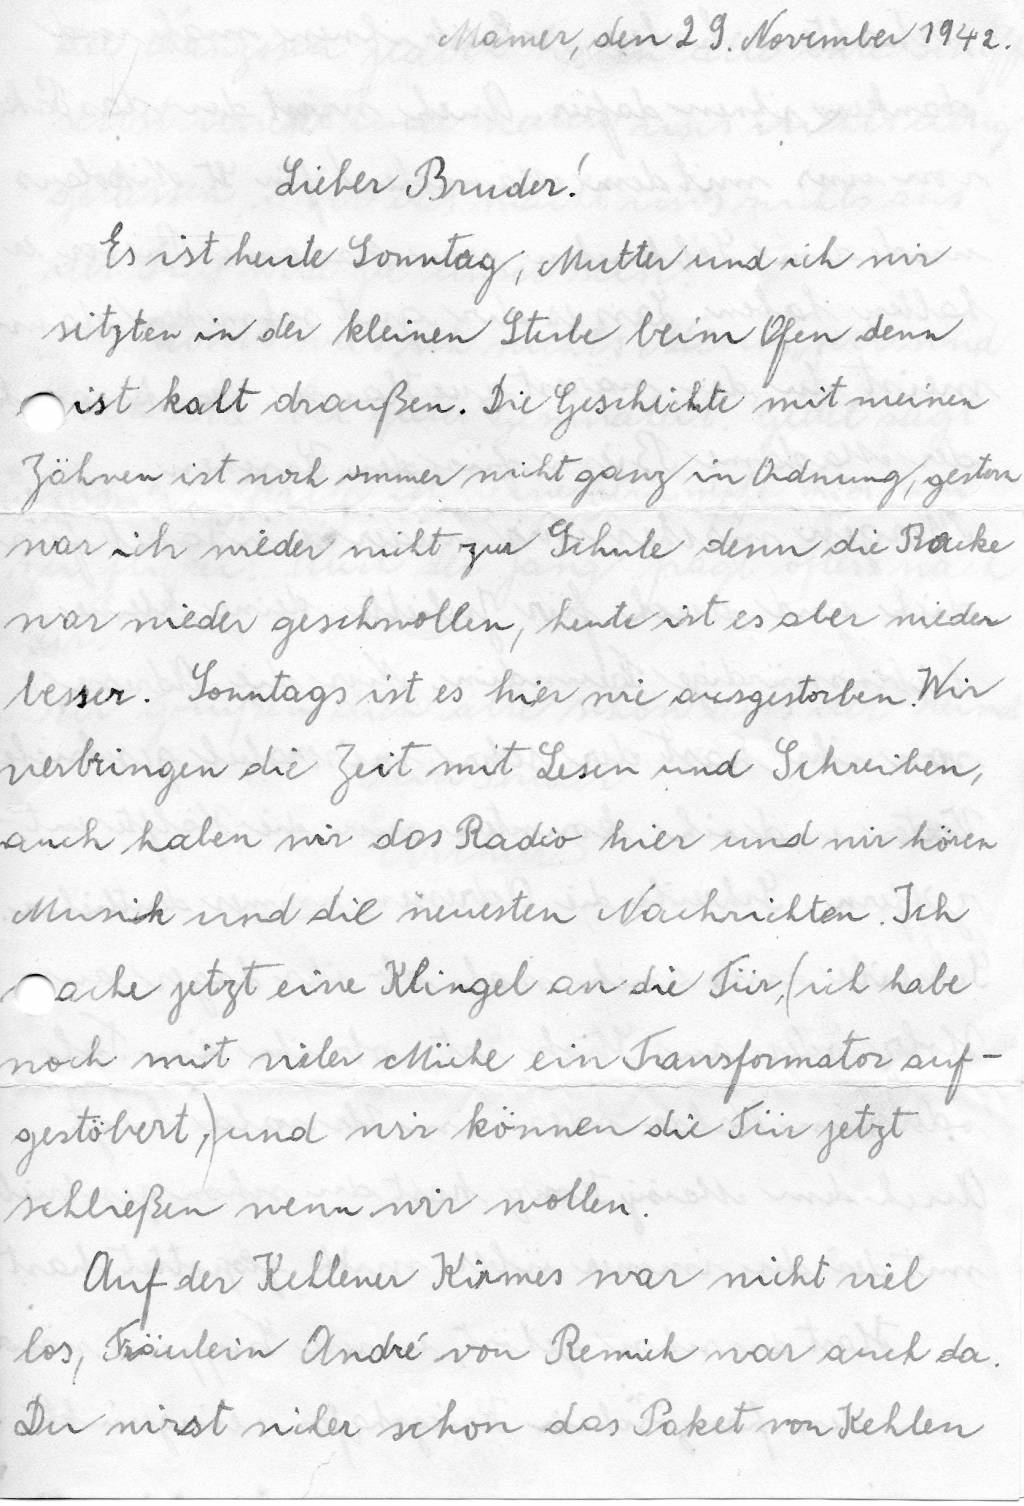 Mamer, den 29. November 1942.
Lieber Bruder!
Es ist heute Sonntag, Mutter und ich wir
sitzten in der kleinen Stube beim Ofen denn
ist kalt draußen. Die Geschichte mit meinen
Zähnen ist noch immer nicht ganz in Ordnung, gestern
war ich wieder nicht zur Schule denn die Backe
war wieder geschwollen, heute ist es aber wieder
besser. Sonntags ist es hier wie ausgestorben. Wir
verbringen die Zeit mit Lesen und Schreiben,
auch haben wir das Radio hier und wir hören
Musik und die neuesten Nachrichten. Ich
mache jetzt eine Klingel an die Tür, (ich habe
noch mit vieler Mühe ein Transformator auf-
gestöbert,) und wir können die Tür jetzt
schließen wenn wir wollen.
Auf der Kehlener Kirmes war nicht viel
los, Fräulein André von Remich war auch da.
Du wirst sicher schon das Paket von Kehlen